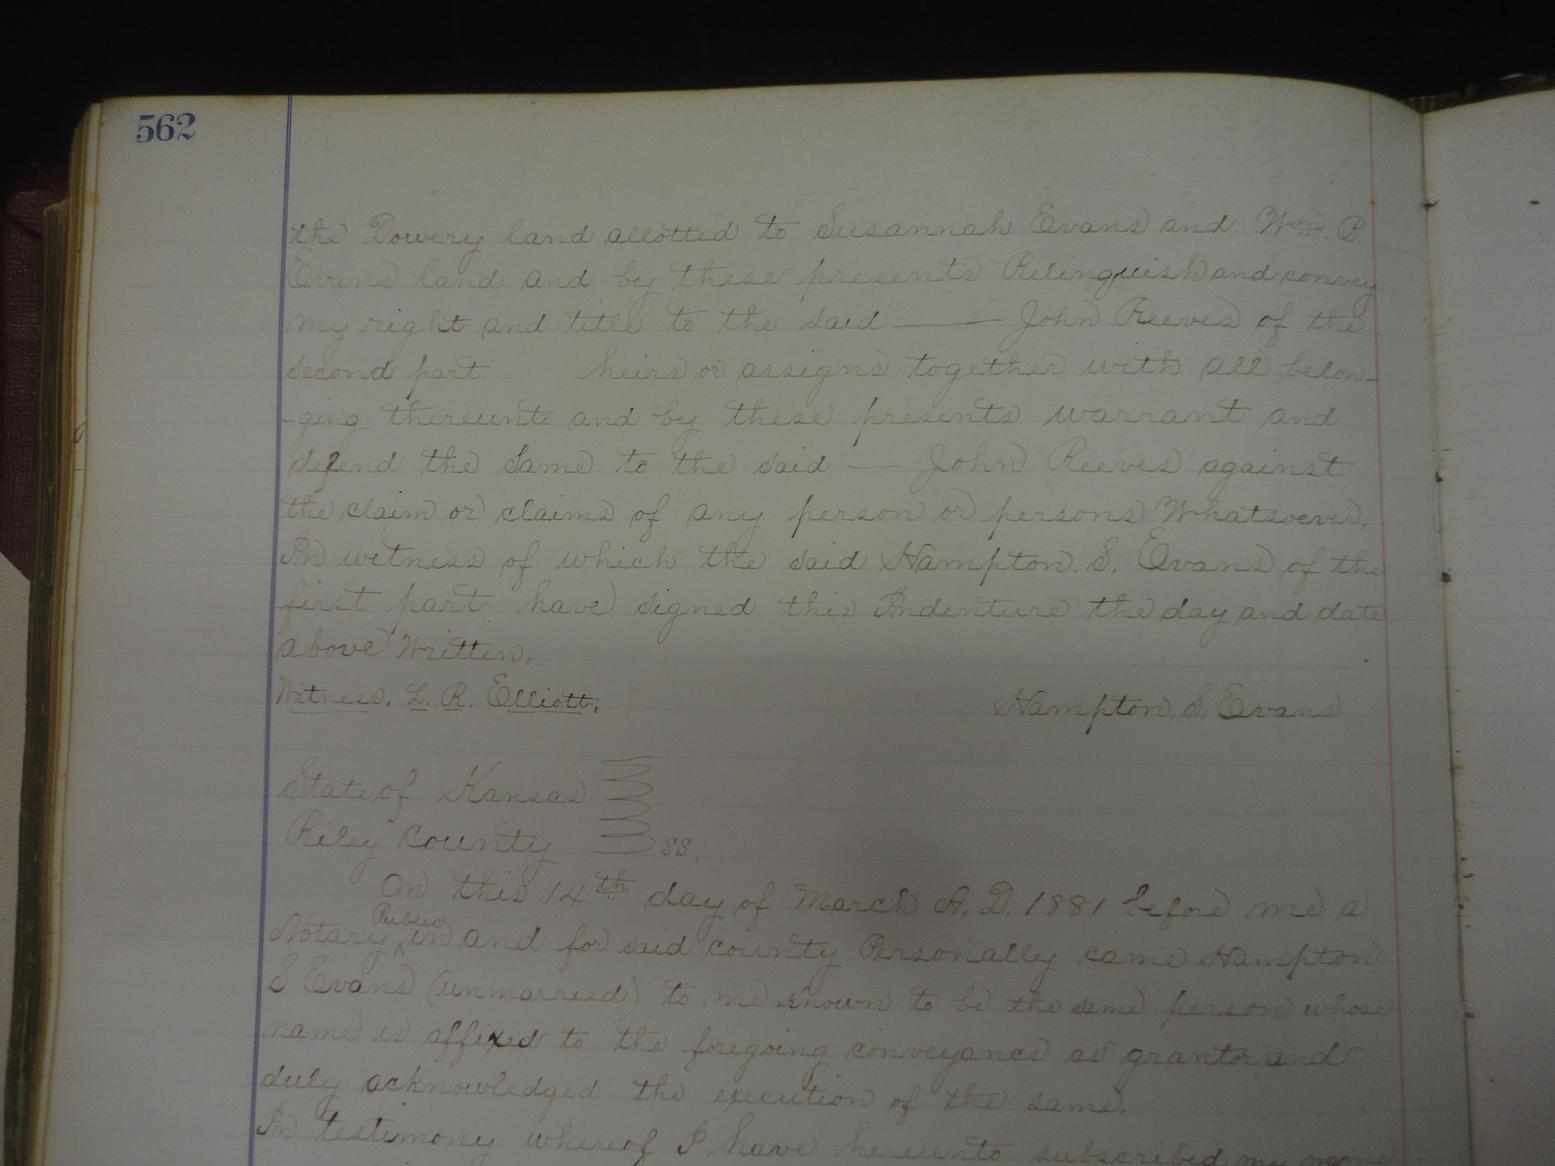 562
the Dowery land allotted to Susannah Evans and Wm. P.
Evans land and by these presents Relinquish and convey
my right and title to the said —— John Reeves of the
second part heirs or assigns together with all belon-
-ging thereunto and by these presents warrant and
defend the same to the said — John Reeves against
the claim or claims of any person or persons Whatsoever,
In witness of which the said Hampton. S. Evans of the
first part have signed this Indenture the day and date
above Written,
Witness, L. R. Elliott, Hampton, S. Evans
State of Kansas
Riley County SS.
On this 14th day of March A. D. 1881 before me a
Notary Public in and for said county Personally came Hampton
S Evans (unmarried) to me known to be the same person whose
name is affixed to the foregoing conveyance as grantor and
duly acknowledged the execution of the same.
In testimony whereof I have hereunto subscribed my name